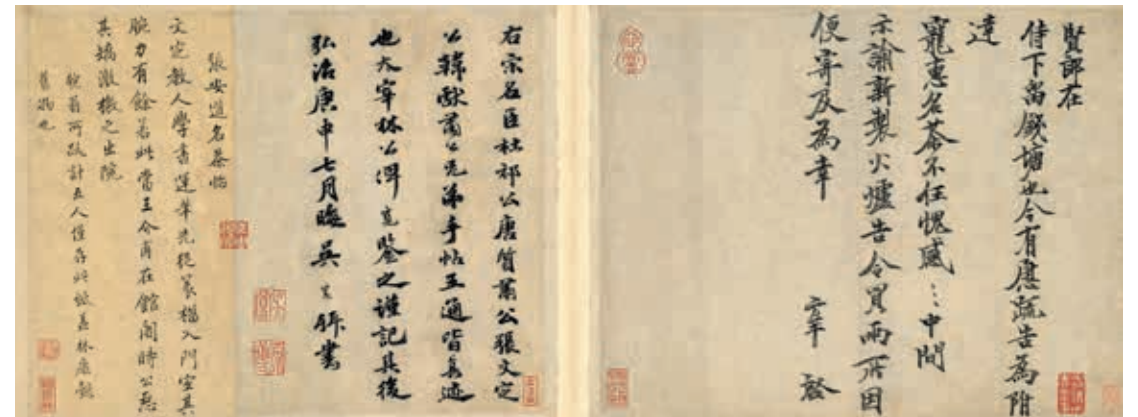 賢郎在
侍下尚飯塘也今有應疏告為附
達
寵惠名茶不任愧感 中間
示諭新製火爐告令買兩所因
便寄及為幸
方平 啓
右宋名臣杜祁公唐質肅公張文定
公韓獻肅公兄弟手帖五通皆真迹
也大宰林公俾寬鑒之謹記其後
弘治庚申七月晦吳寬拜書
張安道名茶帖
文定教人學書運筆先從篆榻入門宜其
腕力有餘若此當王介甫在館閣時公惡
其矯激檄之出院
翁所跋計五人僅存此紙蓋林
舊物也